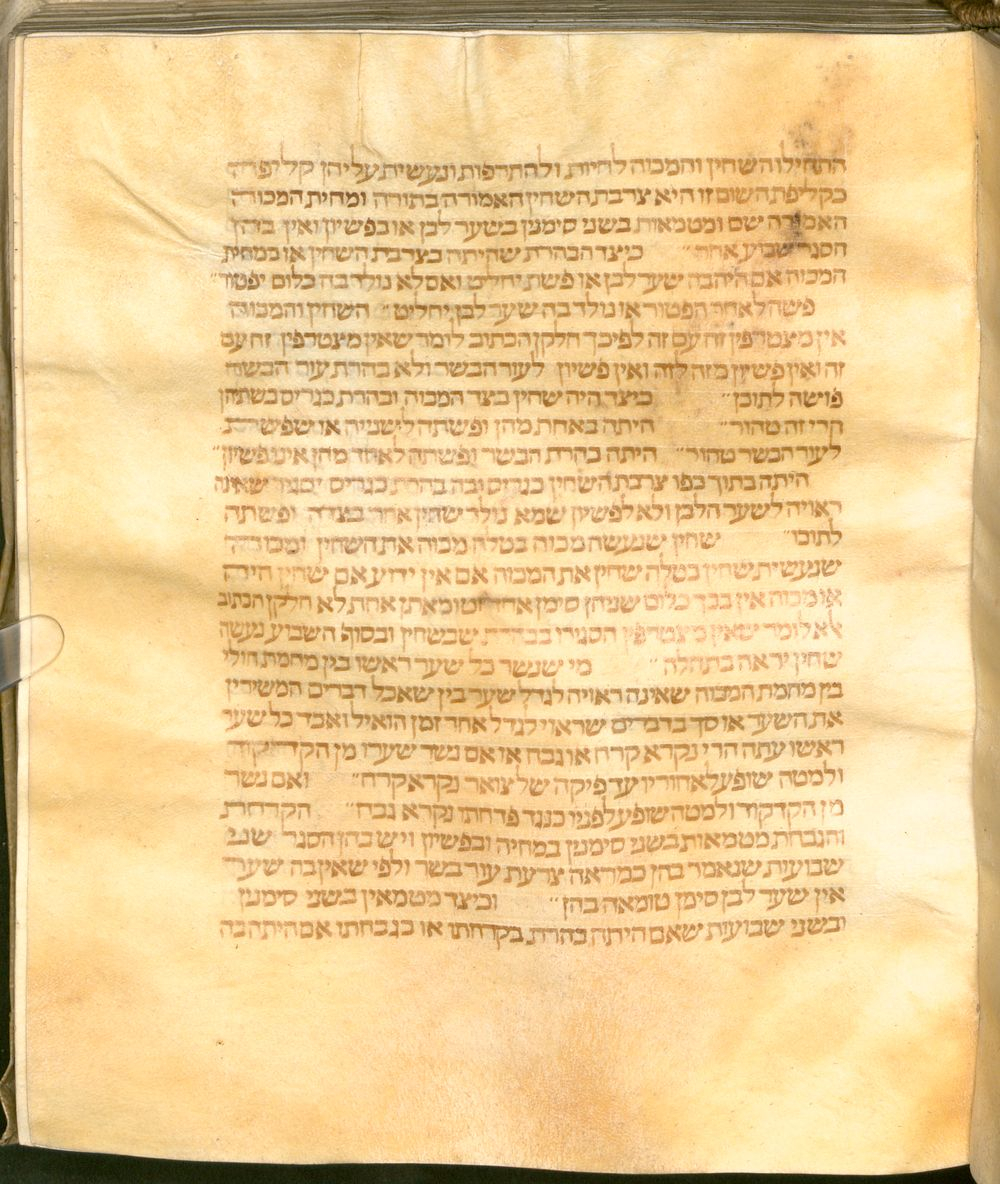 התחילו השחין והמכוה לחיות ולהתרפות ונעשית עליהן קליפה
כקליפת השום זו היא צרבת השחין האמורה בתורה ומחית המכוה
האמורה שם ומטמאות בשני סימנין בשער לבן או בפשיון ואין בהן
הסגר שבוע אחד״ כיצד הבהרת שהיתה בצרבת השחין או במחית
המכוה אם היה בה שער לבן או פשת יחליט ואם לא נולד בה כלום יפטור״
פשה לאחר הפטור או נולד בה שער לבן יחליט״ השחין והמכוה
אין מצטרפין זה עם זה לפיכך חלקן הכתוב לומר שאין מצטרפין זה עם
זה ואין פשיון מזה לזה ואין פשיון לעור הבשר ולא בהרת עור הבשר
פושה לתוכן״ כיצד היה שחין בצד המכוה ובהרת כגריס בשתיהן
הרי זה טהור״ היתה באחת מהן ופשתה לשנייה או שפשתה
לעור הבשר טהור״ היתה בהרת הבשר ופשתה לאחד מהן אינו פשיון״
היתה בתוך כפו צרבת השחין כגריס ובה בהרת כגריס יסגיר שאינה
ראויה לשער הלבן ולא לפשיון שמא נולד שחין אחר בצדה ופשתה
לתוכו״ שחין שנעשה מכוה בטלה מכוה את השחין ומכוה
שנעשית שחין בטלה שחין את המכוה אם אין ידוע אם שחין היה
או מכוה אין בכך כלום שניהן סימן אחד וטומאתן אחת לא חלקן הכתוב
אלא לומר שאין מצטרפין הסגירו בבהרת שבשחין ובסוף השבוע נעשה
שחין יראה בתחלה״ מי שנשר כל שער ראשו בין מחמת חולי
בין מחמת המכוה שאינה ראויה לגדל שער בין שאכל דברים המשירין
את השער או סך בדברים שראוי לגדל אחר זמן הואיל ואבד כל שער
ראשו עתה הרי נקרא קרח או גבח או אם נשר שערו מן הקדקוד
ולמטה שופע לאחוריו עד פיקה של צואר נקרא קרח״ ואם נשר
מן הקדקוד ולמטה שופע לפניו כנגד פדחתו נקרא גבח״ הקרחת
והגבחת מטמאות בשני סימנין במחיה ובפשיון ויש בהן הסגר שני
שבועות שנאמר בהן כמראה צרעת עור בשר ולפי שאין בה שער
אין שער לבן סימן טומאה בהן״ וכיצד מטמאין בשני סימנין
ובשני שבועות שאם היתה בהרת בקרחתו או בגבחתו אם היתה בה